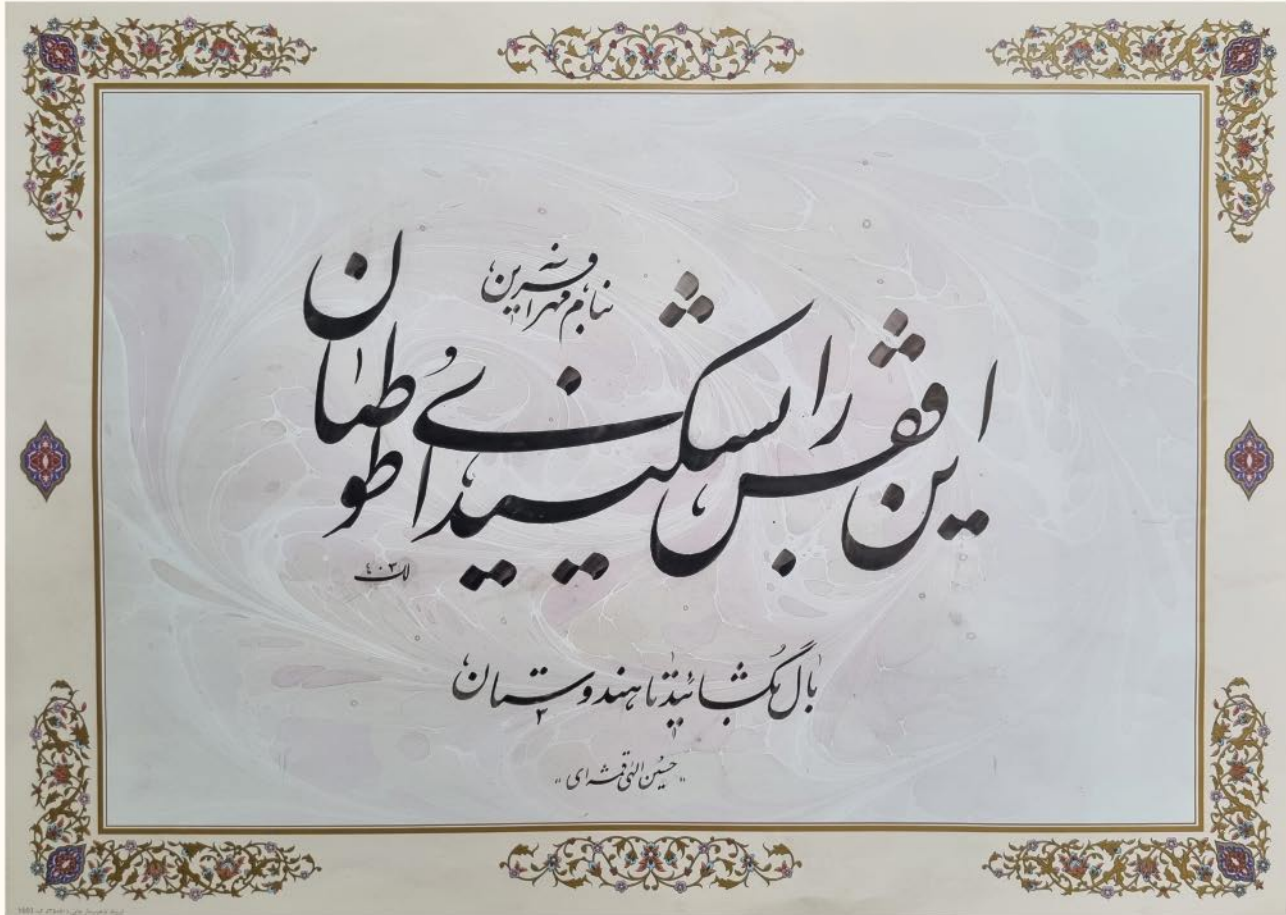 بنام مهرآفرین
این قفس را بشکنید ای طوطیان
بال بگشائید تا هندوستان
"حسین الهی قمشه‌ای"